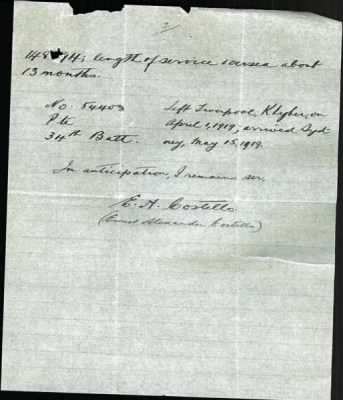 2
148 94; length of service oversea about
13 months.
No 54403 Left Liverpool, Khyber, on
Pte April 1, 1919; arrived Syd-
34th Batt. ney, May 15, 1919.
In anticipation, I remain sir.
E. A. Costello
(Ernest Alexander Costello)